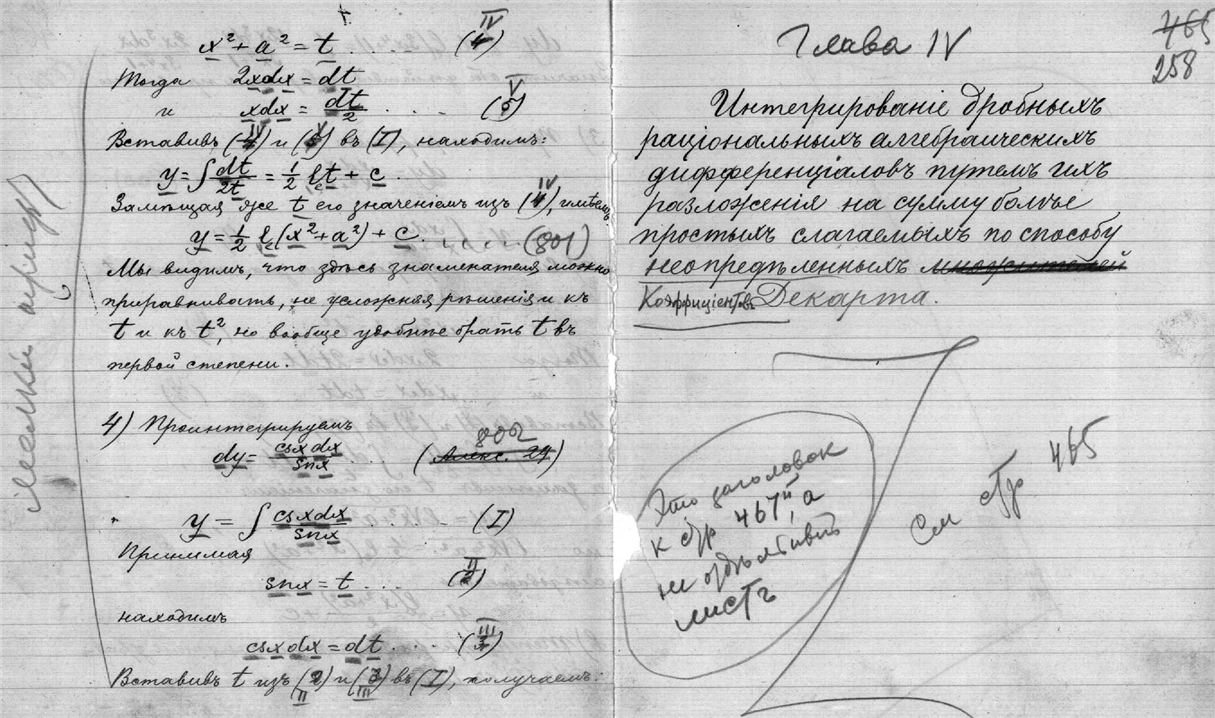 x² + a² = t . . . (IV)
Тогда 2xdx = dt
и xdx = dt/2 . . . (V)
Вставивъ (IV) и (V) въ (I), находимъ:
y = ∫ dt/2t = 1/2 lₑt + c
Замѣщая же t его значенiемъ изъ (IV), имѣемъ
y = 1/2 lₑ(x² + a²) + c . . . . . (801)
Мы видимъ, что здѣсь знаменателя можно
приравнивать, не усложняя рѣшенiя и къ
t и къ t², но вообще удобнѣе брать t въ
первой степени.
4) Проинтегрируемъ
dy = csx dx/snx . . . (802)
y = ∫ csxdx/snx (I)
Принимая
snx = t . . . (II)
находимъ
csx dx = dt . . . (III)
Вставивъ t изъ (II) и (III) въ (I), получаемъ:
465
258
Глава IV
Интегрированiе дробныхъ
рацiональныхъ алгебраическихъ
дифференцiаловъ путемъ ихъ
разложенiя на сумму болѣе
простыхъ слагаемыхъ по способу
неопредѣленныхъ множителей
Коэффицiентовъ Декарта.
Это заголовок
к стр 467й, а
не отдѣльный
листъ
См стр 465